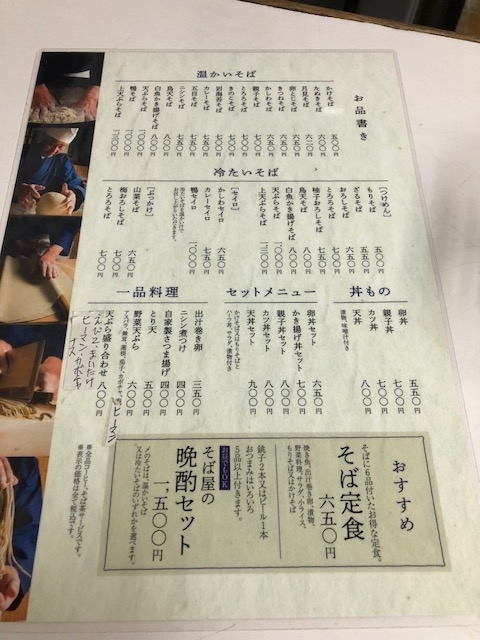 お品書き
温かいそば
かけそば 五五〇円
たぬきそば 六〇〇円
月見そば 六二〇円
卵とじそば 六五〇円
きつねそば 六五〇円
かしわそば 六五〇円
親子そば 七〇〇円
とろろそば 七〇〇円
きのこそば 七〇〇円
岩海苔そば 七五〇円
カレーそば 七五〇円
五目そば 七五〇円
ニシンそば 七五〇円
鳥天そば 八〇〇円
白魚かき揚げそば 八〇〇円
天ぷらそば
鴨そば
上天ぷらそば 一、三〇〇円
冷たいそば
[つけめん]
もりそば 五五〇円
ざるそば 五五〇円
おろしそば 六五〇円
とろろそば 七〇〇円
柚子おろしそば 七〇〇円
鳥天そば 八〇〇円
白魚かき揚げそば 八〇〇円
天ぷらそば
上天ぷらそば 一、三〇〇円
[セイロ]
かしわセイロ 六五〇円
カレーセイロ 七五〇円
鴨セイロ
[ぶっかけ]
山菜そば 六五〇円
梅おろしそば 七〇〇円
とろろそば 七〇〇円
丼もの
卵丼 五五〇円
親子丼 七〇〇円
カツ丼 七〇〇円
天丼 八〇〇円
漬物、味噌汁付き
セットメニュー
卵丼セット 六五〇円
かき揚げ丼セット 七〇〇円
親子丼セット 八〇〇円
カツ丼セット 八〇〇円
天丼セット 九〇〇円
一品料理
出汁巻き卵 三五〇円
ニシン煮つけ 四〇〇円
自家製さつま揚げ 四〇〇円
とり天 五〇〇円
野菜天ぷら 六〇〇円
天ぷら盛り合わせ 八〇〇円
ピーマン
えんぴつ、まいたけ
ピーマン、カボチャ
ナス
おすすめ
そばに6品付いたお得な定食。
そば定食
六五〇円
焼き魚、出汁巻き卵、漬物、
野菜料理、サラダ、小ライス、
もりそば又はかけそば
銚子2本又はビール1本
おつまみはいろいろ
5品以上付きます。
お昼でもOK
そば屋の
晩酌セット
一、五〇〇円
〆のそばは、温かいそば
又は冷たいそばのいずれかを選べます。
※全品コーヒー、そば茶サービスです。
※表示の価格は全て税込です。